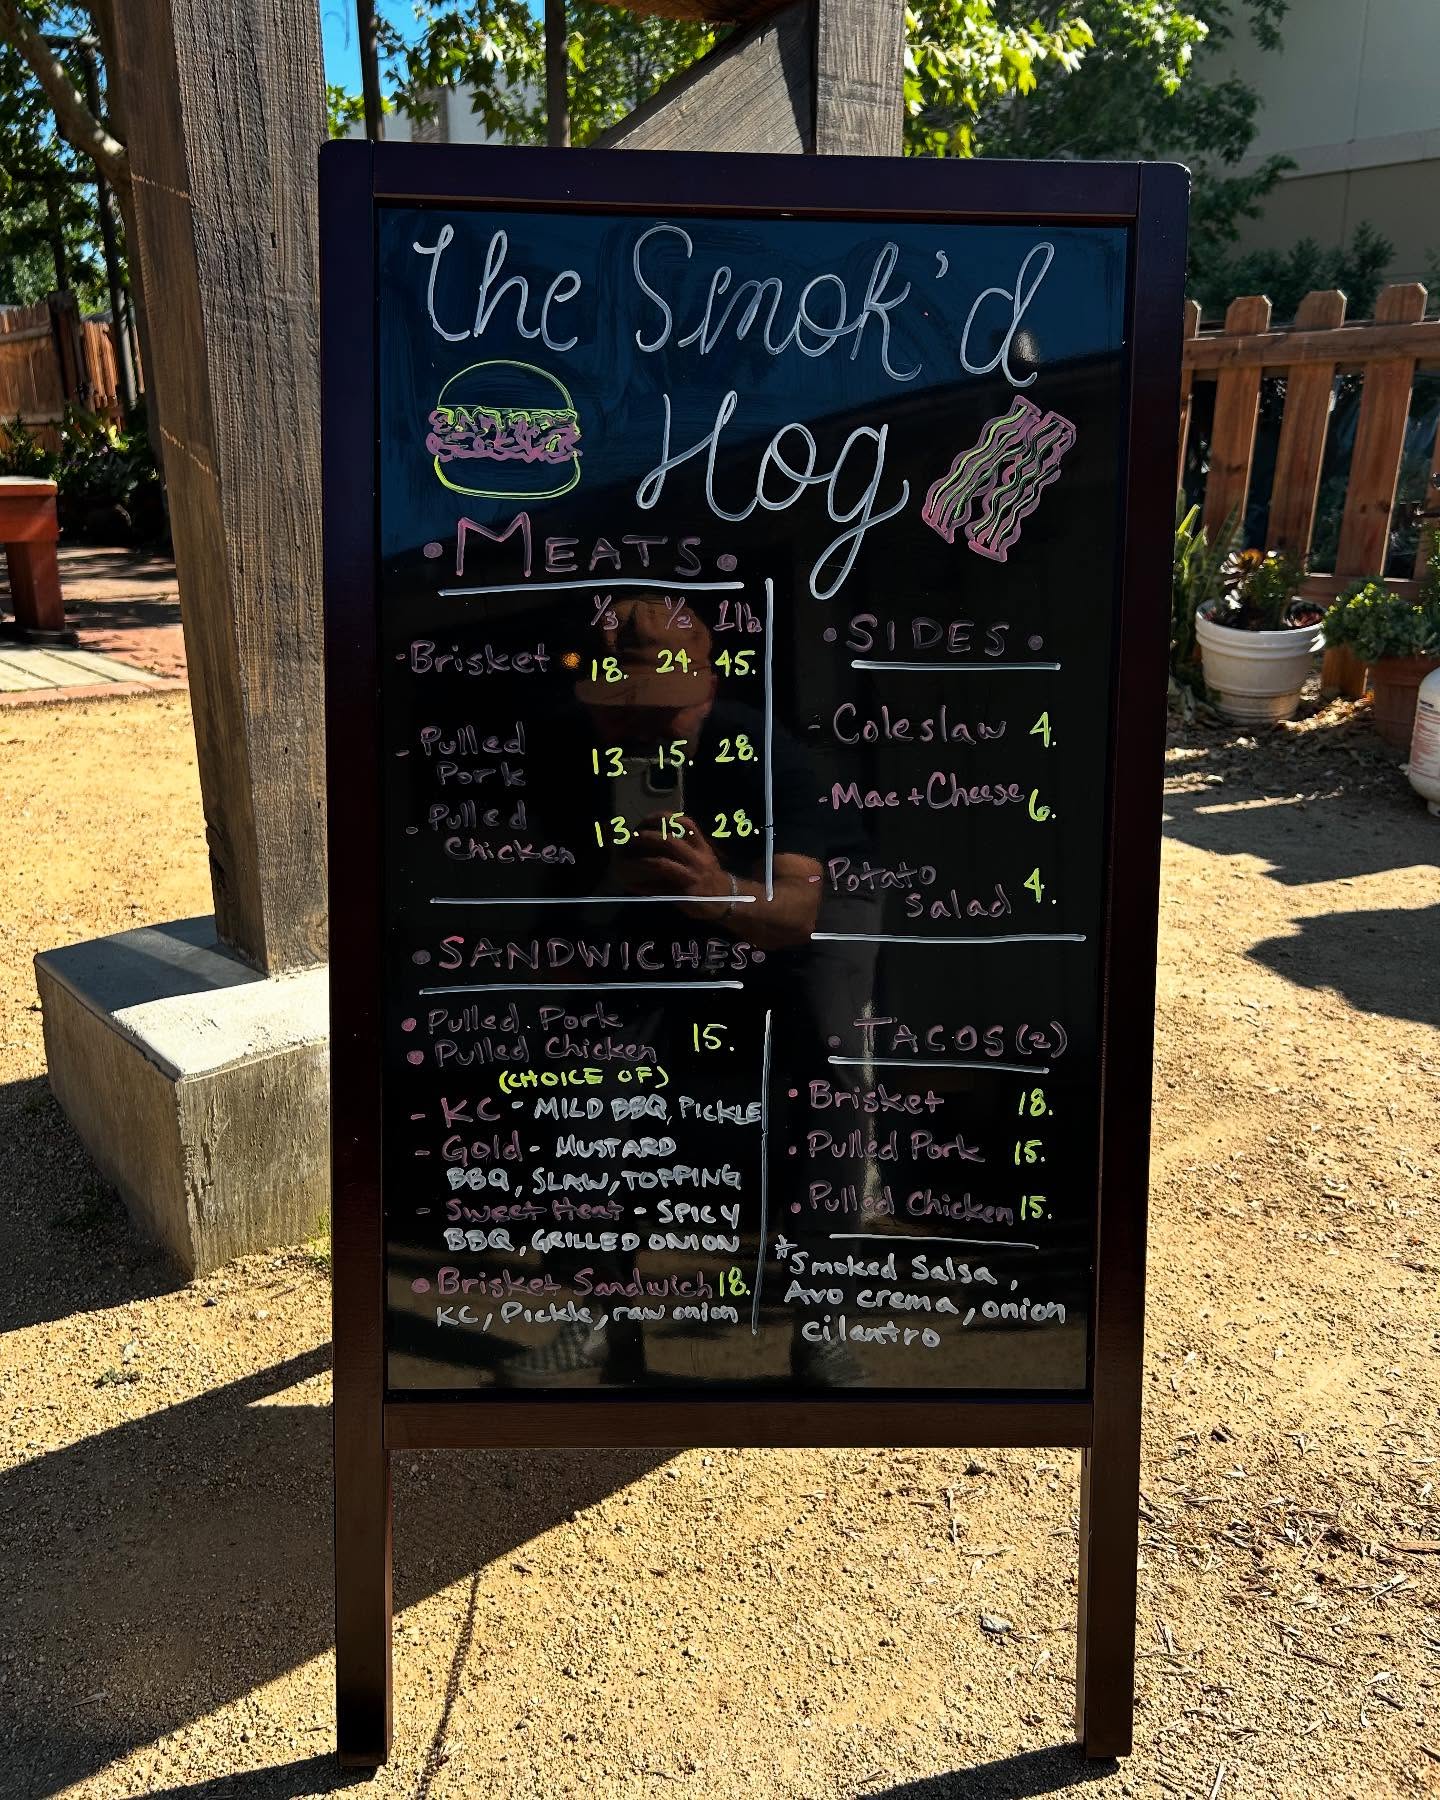 The Smok'd
Hog
• MEATS •
1/3 1/2 1lb
- Brisket • 18. 24. 45.
- Pulled
Pork 13. 15. 28.
- Pulled
Chicken 13. 15. 28.
• SIDES •
- Coleslaw 4.
- Mac + Cheese 6.
- Potato
Salad 4.
• SANDWICHES •
• Pulled Pork
• Pulled Chicken 15.
(CHOICE OF)
- KC - MILD BBQ, PICKLE
- Gold - MUSTARD
BBQ, SLAW, TOPPING
- Sweet Heat - SPICY
BBQ, GRILLED ONION
• Brisket Sandwich 18.
KC, Pickle, raw onion
• TACOS (2)
• Brisket 18.
• Pulled Pork 15.
• Pulled Chicken 15.
* Smoked Salsa,
Avo crema, onion
cilantro